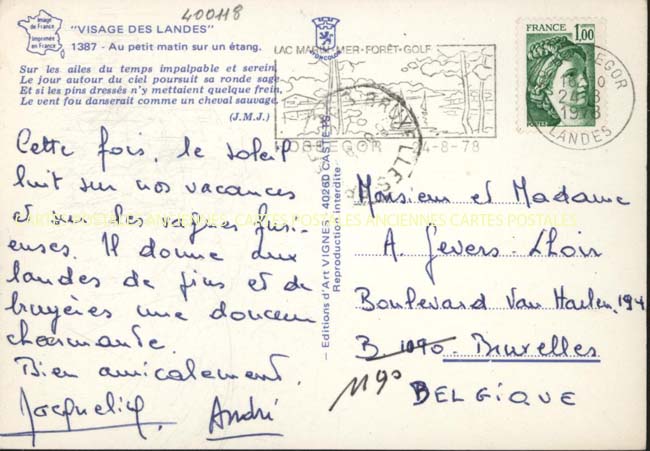 400118
Image
de France
Imprimée
en France
"VISAGE DES LANDES"
1387 - Au petit matin sur un étang.
Sur les ailes du temps impalpable et serein,
Le jour autour du ciel poursuit sa ronde sage
Et si les pins dressés n'y mettaient quelque frein,
Le vent fou danserait comme un cheval sauvage.
(J.M.J.)
Cette fois, le soleil
luit sur nos vacances
et sur les vagues furi-
euses. Il donne aux
landes de pins et de
bruyères une douceur
charmante.
Bien amicalement.
André
— Editions d'Art VIGNES - 40260 CASTETS
Reproduction interdite
LAC MARIN·MER·FORÊT·GOLF
4-8-78
BRUXELLES
FRANCE
1,00
1978
LANDES
CARTES POSTALES ANCIENNES CARTES POSTALES
Monsieur et Madame
A. Gevers-Lhoir
Boulevard Van Haelen, 194
B 1090 - Bruxelles
1190
BELGIQUE